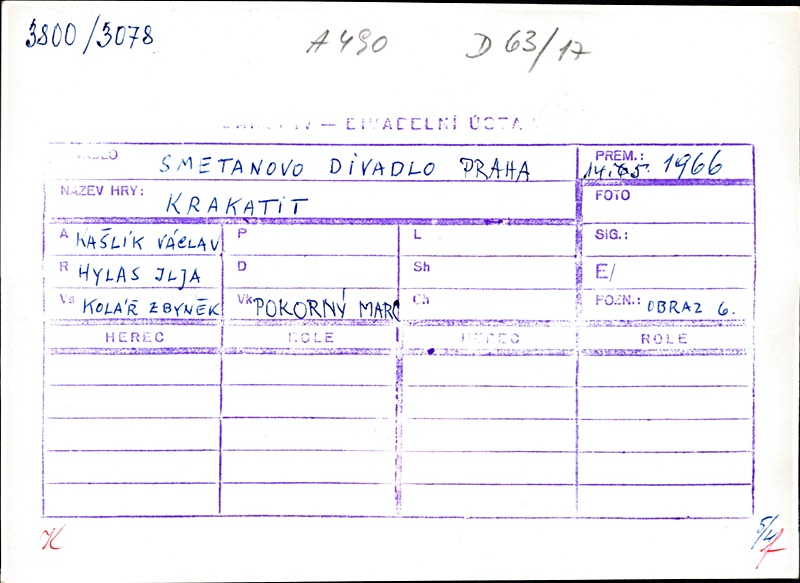 3800/3078 A 490 D 63/17
DIVADELNÍ ÚSTA
SMETANOVO DIVADLO PRAHA PREM.: 1966
NÁZEV HRY: KRAKATIT FOTO
A KAŠLÍK VÁCLAV P L SIG.:
R HYLAS ILJA D Sh E/
Vs KOLÁŘ ZBYNĚK Vk POKORNÝ MARC Ch POZN.: OBRAZ 6.
HEREC ROLE HEREC ROLE
K